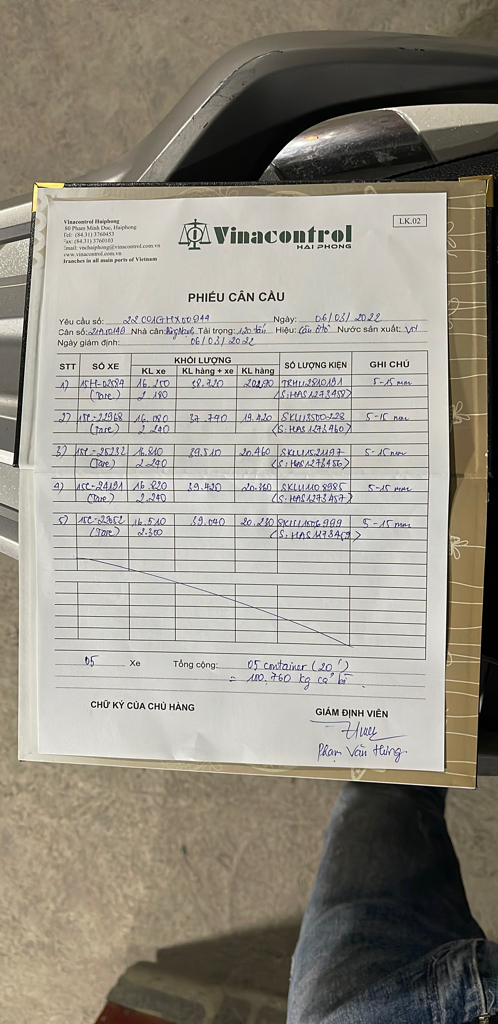 Vinacontrol Haiphong
80 Pham Minh Duc, Haiphong
Tel: (84.31) 3760453
Fax: (84.31) 3760103
Email: vnchaiphong@vinacontrol.com.vn
www.vinacontrol.com.vn
Branches in all main ports of Vietnam
Vinacontrol
HAI PHONG
LK.02
PHIẾU CÂN CẦU
Yêu cầu số: Ngày: 06/03/2022
Cân số: Nhà cân: Tải trọng: 120 tấn Hiệu: Cân ô tô Nước sản xuất: VN
Ngày giám định: 06/03/2022
STT SỐ XE KHỐI LƯỢNG SỐ LƯỢNG KIỆN GHI CHÚ
KL xe KL hàng + xe KL hàng
1) 15H-02584 38.720 5-15 mm
(Tare) 2.180 (S: HAS1273458)
2) 15C-22968 16.080 37.740 19.420 SKLU1300228 5-15 mm
(Tare) 2.240 (S: HAS1273460)
3) 15C-25232 16.810 39.510 20.460 SKLU1521197 5-15 mm
(Tare) 2.240 (S: HAS1273456)
4) 15C-24191 16.820 39.420 20.360 SKLU1108985 5-15 mm
(Tare) 2.240 (S: HAS1273457)
5) 16.510 39.040 20.230 SKLU1506999 5-15 mm
(Tare) 2.300 (S: HAS1273459)
05 Xe Tổng cộng: 05 container (20')
= 100.760 kg cả bì
CHỮ KÝ CỦA CHỦ HÀNG
GIÁM ĐỊNH VIÊN
Phạm Văn Hùng